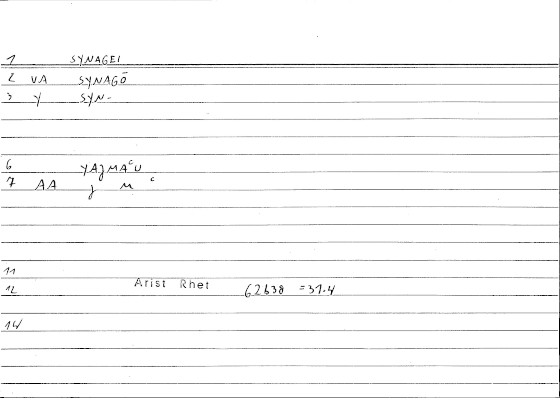 1 SYNAGEI
2 VA SYNAGŌ
3 Y SYN-
6 YAJMAᶜU
7 AA J M ᶜ
11
12 Arist Rhet 62b38 =31.4
14